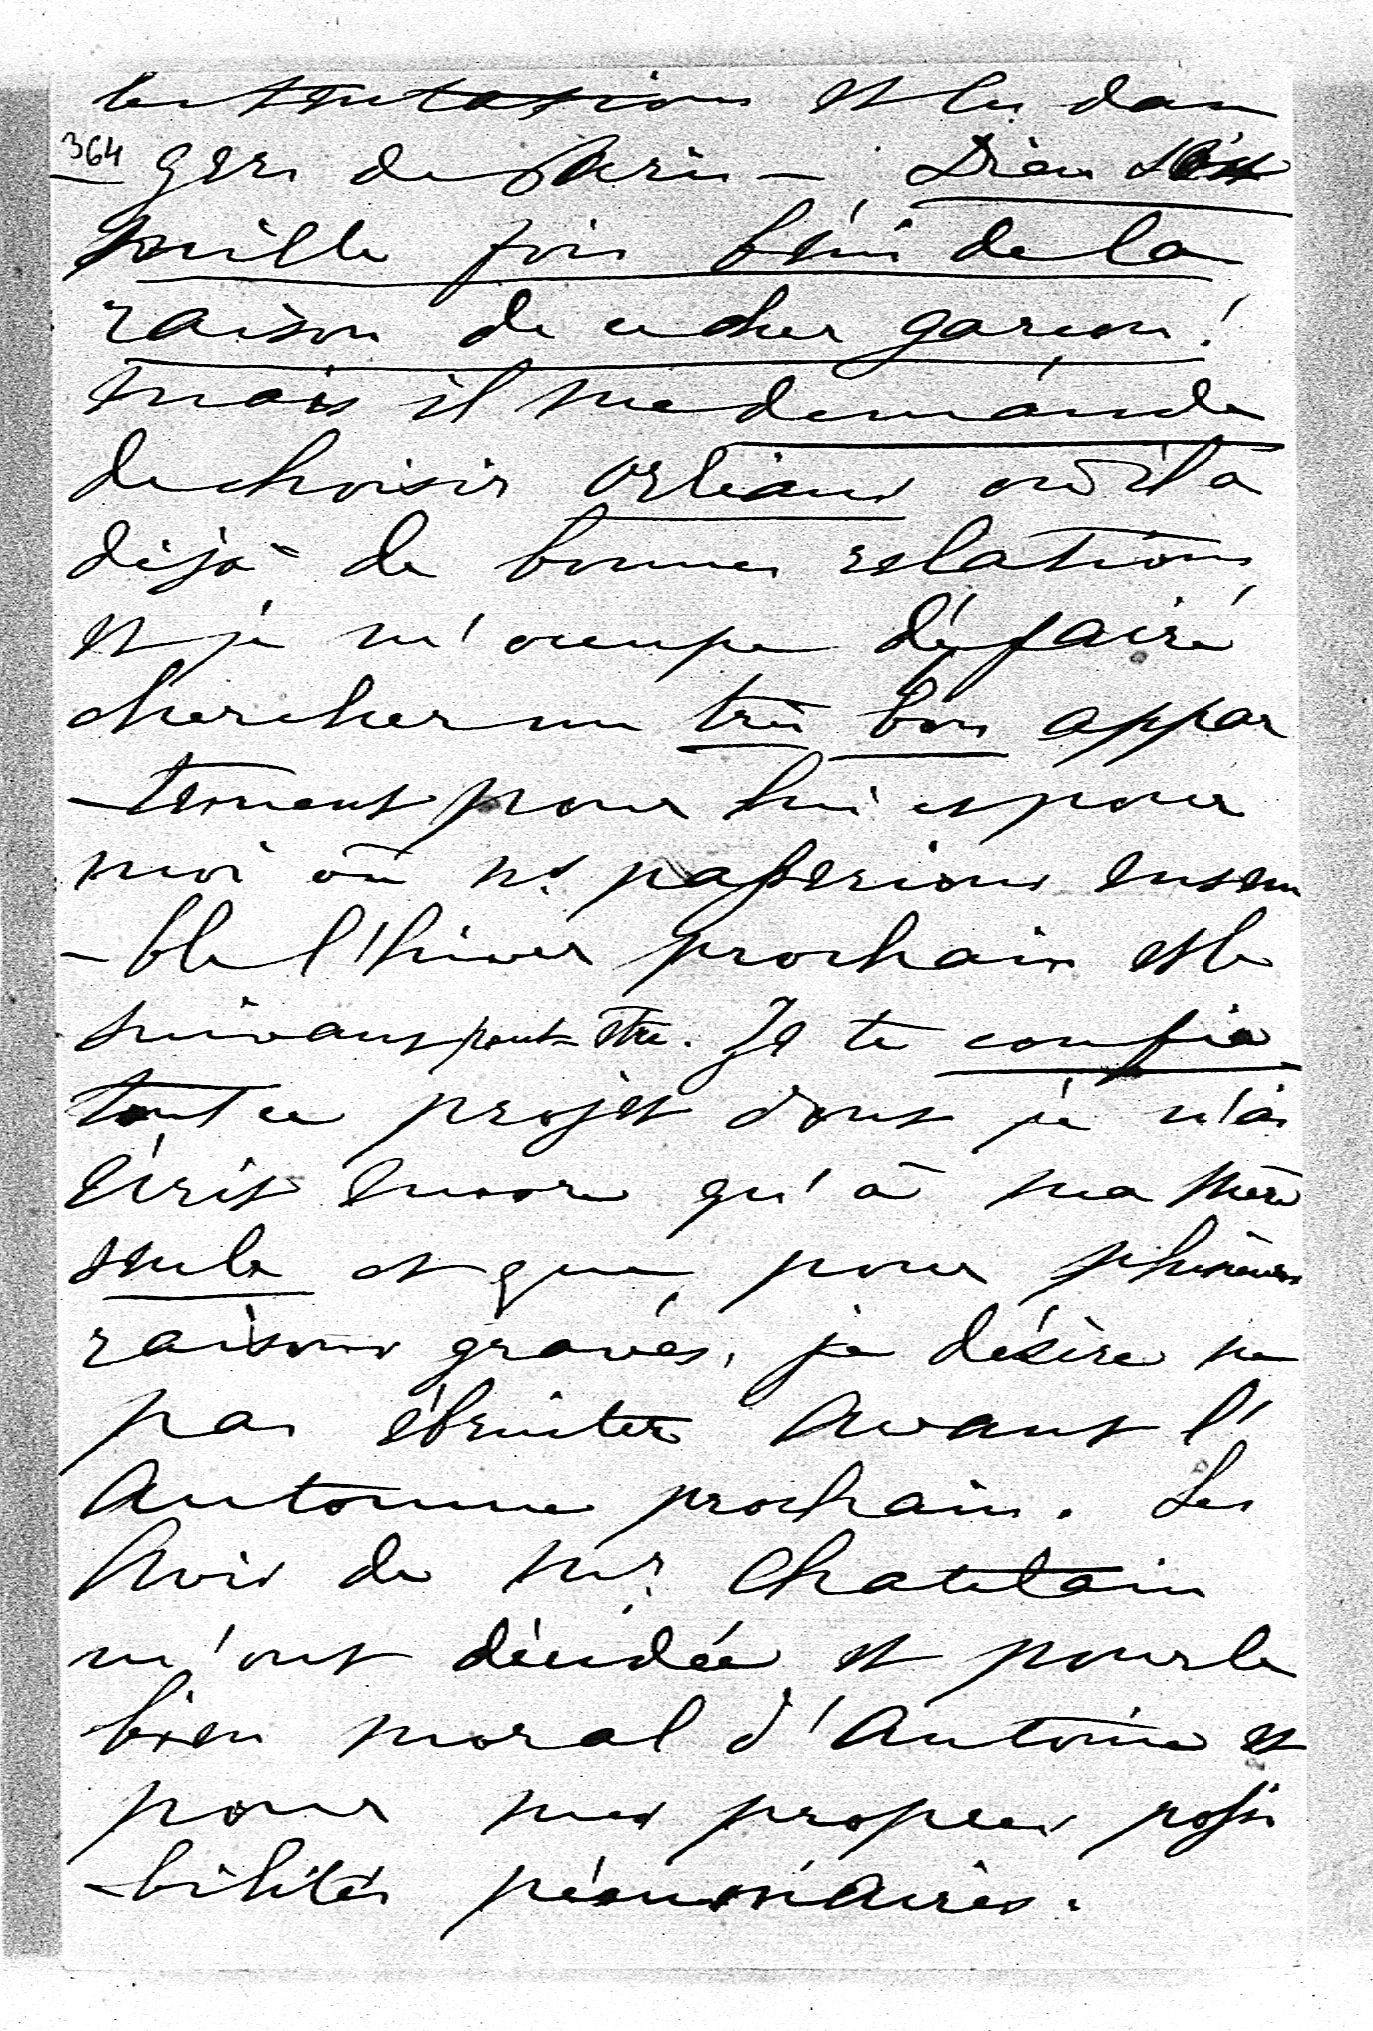 les tentations et les dan
364
- gers de Paris - Dieu soit
mille fois béni de la
raison de ce cher garçon!
mais il me demande
de choisir Orléans où il a
déjà de bonnes relations,
et je m'occupe de faire
chercher un très bon appar
-tement pour lui et pour
moi où ns passerions ensem
-ble l'hiver prochain et le
suivant peut-être. Je te confie
tout ce projet dont je n'ai
écrit encore qu'à ma mère
seule et que, pour plusieurs
raisons graves, je désire ne
pas ébruiter avant l'
automne prochain. Les
avis de Mr. Chatelain
m'ont décidée et pour le
bien moral d'Antoine et
pour mes propres possi
-bilités pécuniaires.